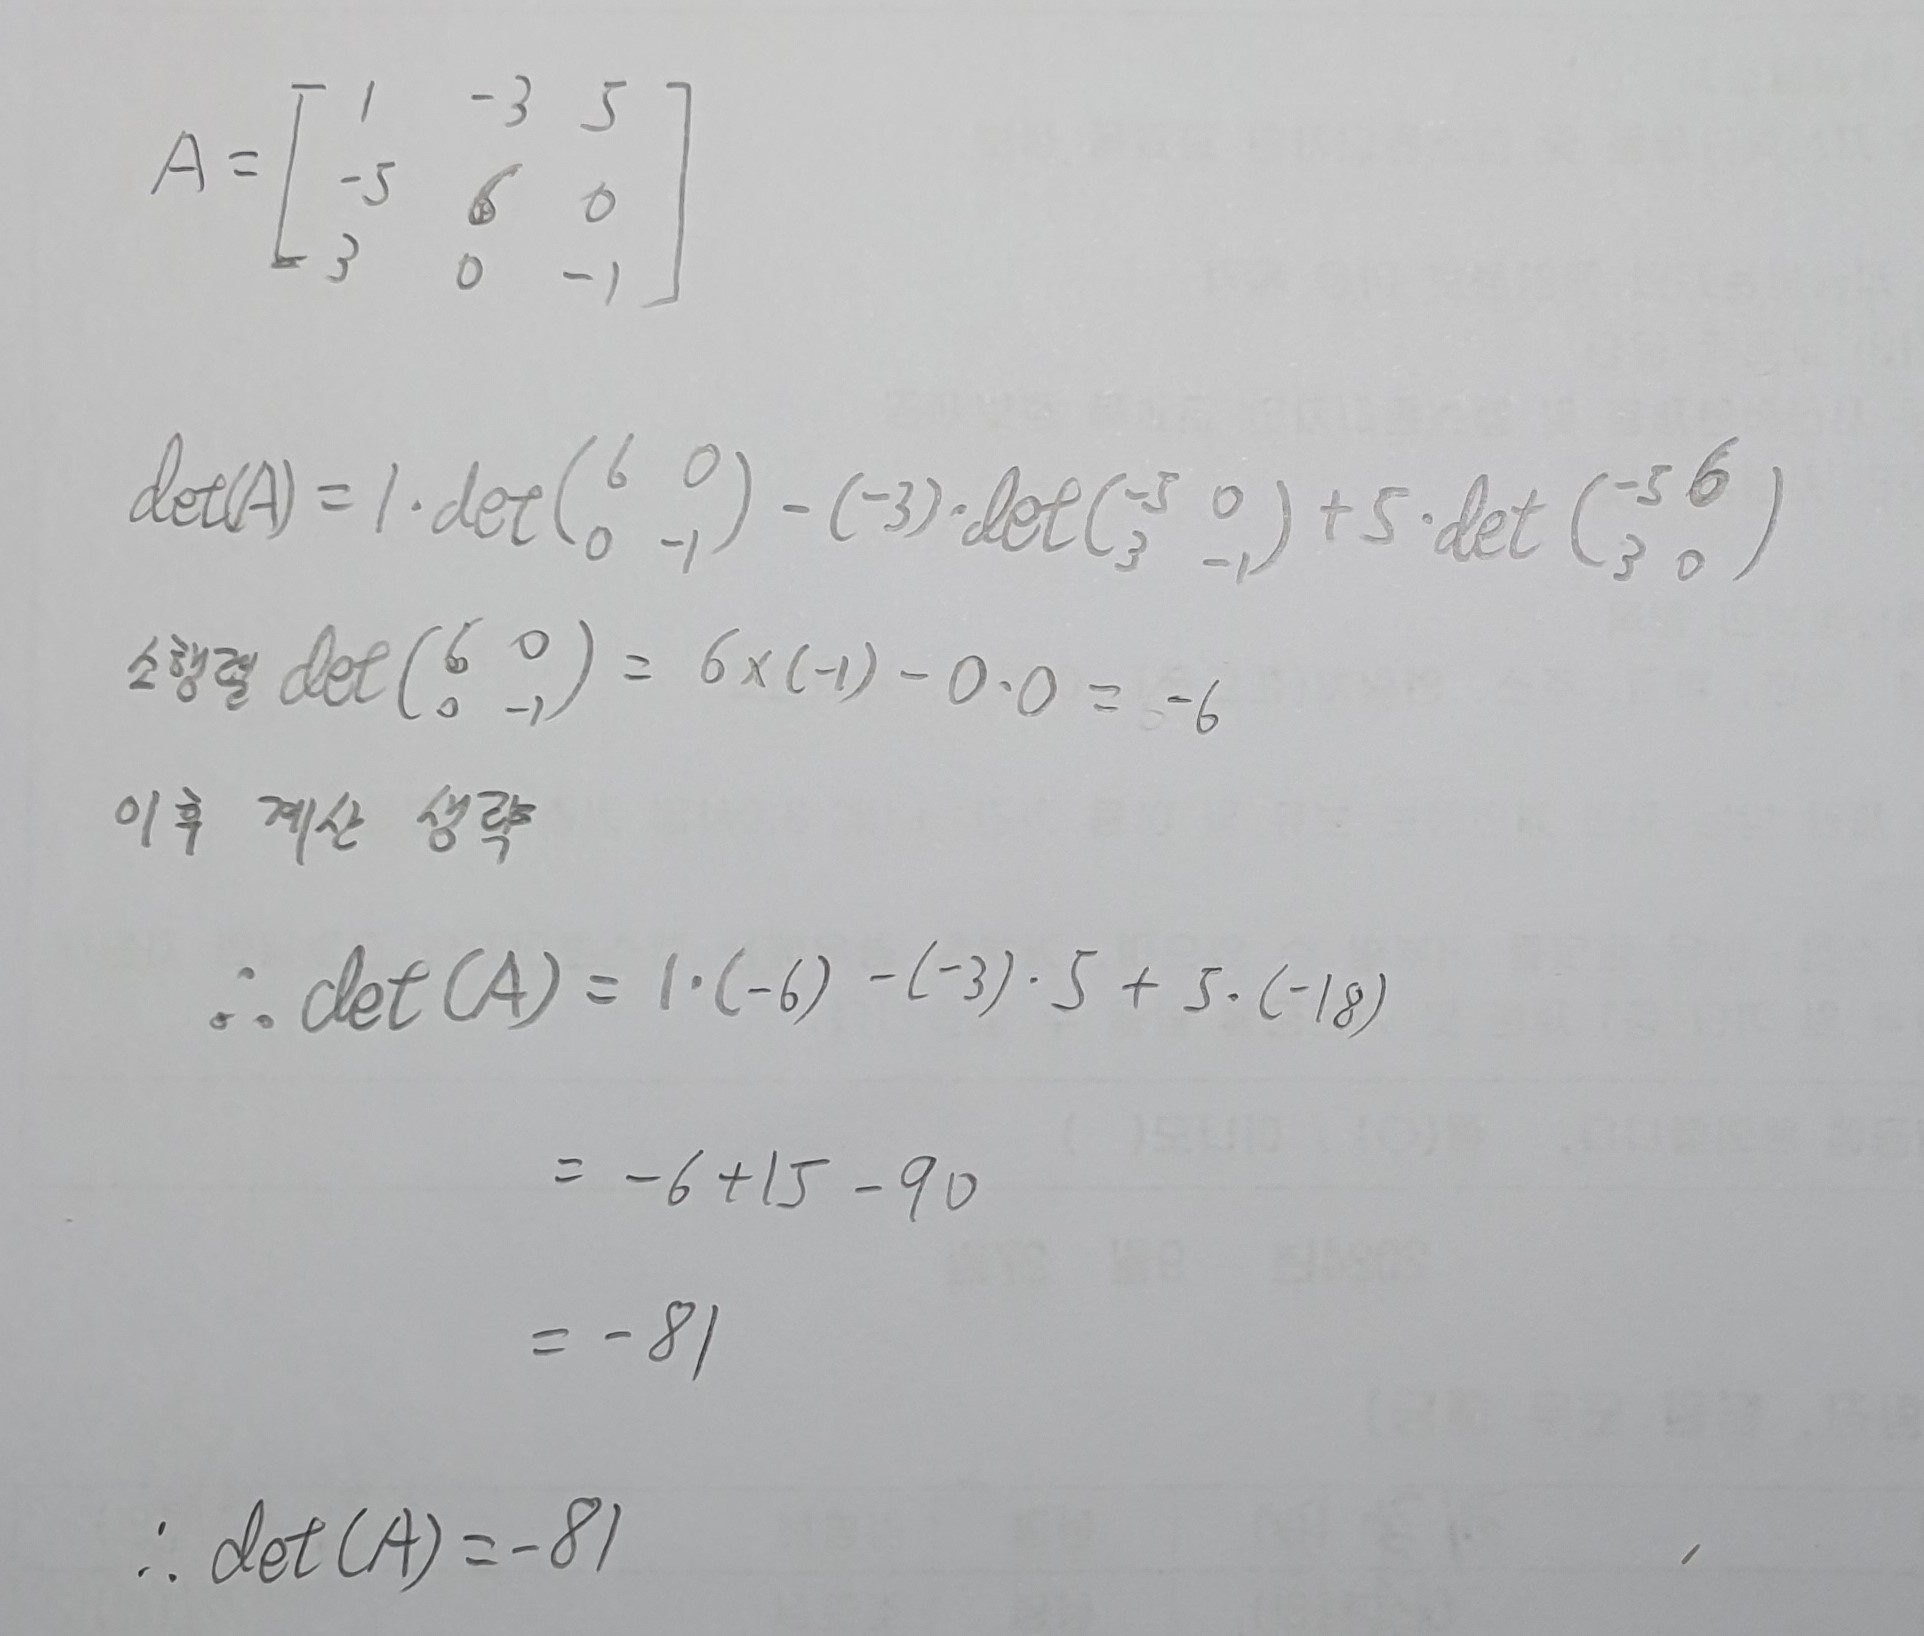 A = [ 1 -3 5
-5 6 0
3 0 -1 ]
det(A) = 1·det(6 0 0 -1) - (-3)·det(-5 0 3 -1) + 5·det(-5 6 3 0)
소행렬 det(6 0 0 -1) = 6×(-1) - 0·0 = -6
이후 계산 생략
∴ det(A) = 1·(-6) - (-3)·5 + 5·(-18)
= -6+15-90
= -81
∴ det(A) = -81